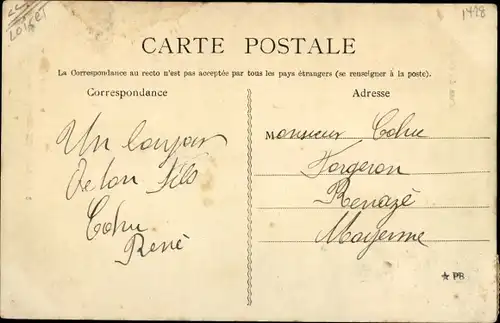 LOIRET
1428
CARTE POSTALE
La Correspondance au recto n'est pas acceptée par tous les pays étrangers (se renseigner à la poste).
Correspondance
Adresse
Un bonjour
De ton Fils
Cohu
René
Monsieur Cohu
Forgeron
Renazé
Mayenne
★ PB